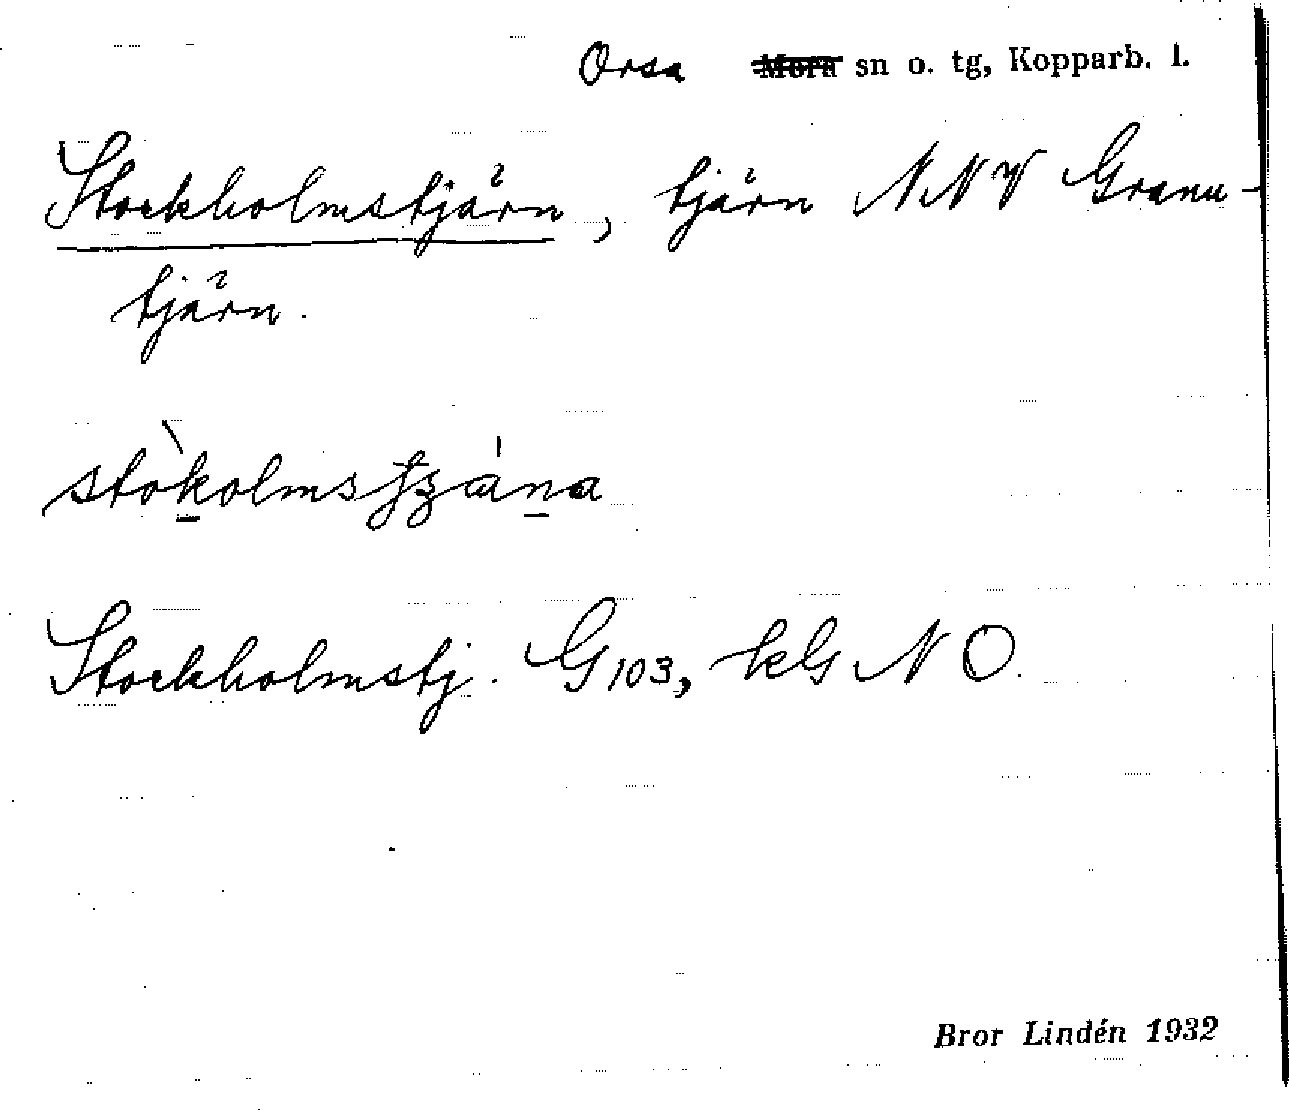 Orsa Mora sn o. tg, Kopparb. l.
Stockholmstjärn, tjärn NNV Granu-
tjärn.
Stockholmstj. G103, kG NO.
Bror Lindén 1932